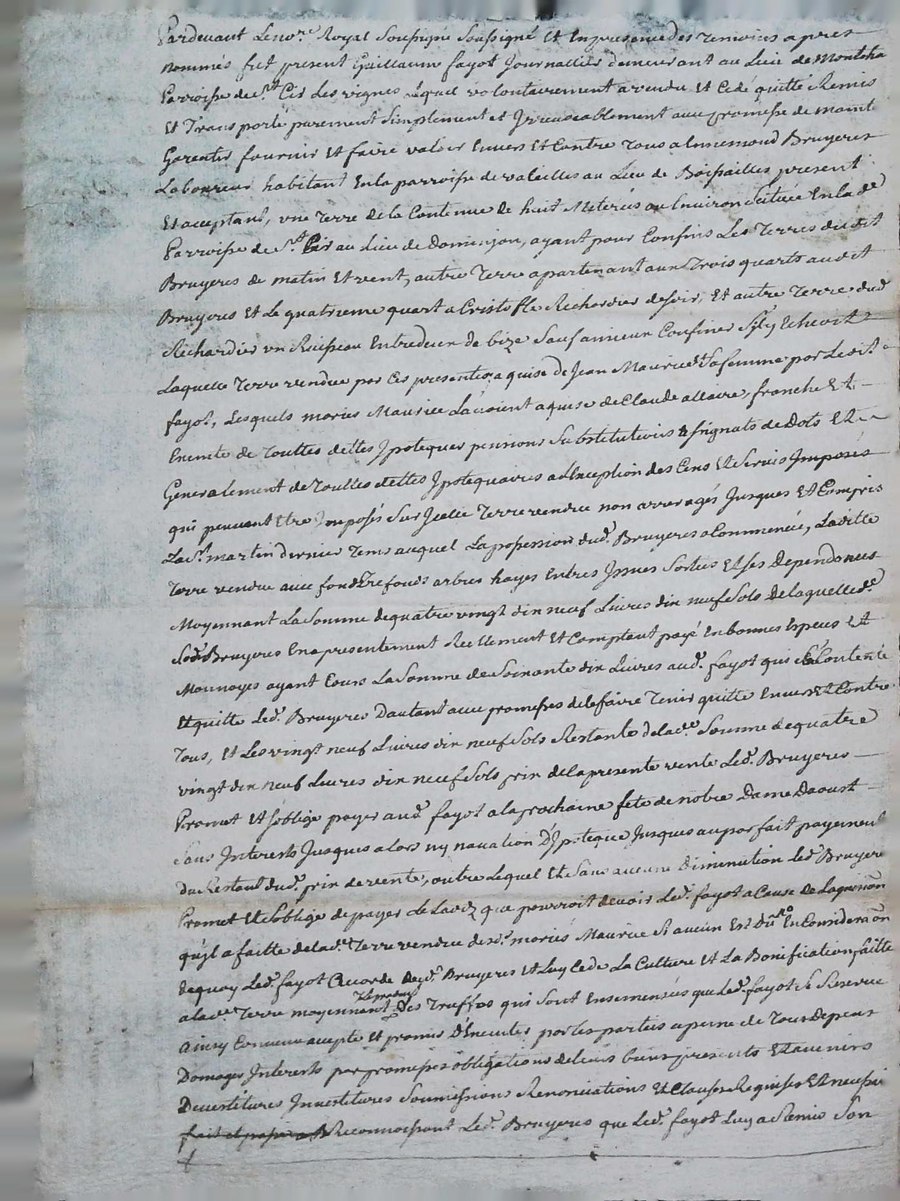 Pardevant Le no.re Royal Soussigné Soussigné Et En presence des Temoins apres
nommes fut present Guillaume fayot Journallier demeurant au Lieu de
Parroisse de S.t Cir Les vignes Lequel volontairement a vendu Et Cedé quitté Remis
Et Transporté purement Simplement et Irrevocablement aux promesse de maint
Garentir fournir Et faire valoir Envers Et Contre Tous a Bruyeres
Laboureur habitant En la parroisse de valeilles au Lieu de Boissailles present
Et aceptant, une Terre de la Contenue de huit Meterées ou Environ Scituée En lad.e
Parroisse de S.t Cir au Lieu de Dominjon, ayant pour Confins Les Terres dudit
Bruyeres de matin Et vent, autre Terre apartenant aux Trois quarts audit
Bruyeres Et Le quatrieme quart a Cristofle Richardier de soir, Et autre Terre dud.
Richardier un Ruisseau Entredeux de bize Sauf amieux Confiner Sy Echeoit
Laquelle Terre vendue par Ces presentes aquise de Jean Maurice Et Sa femme par Ledit
fayot, Lesquels mariés Maurice L'avoient aquise de Claude allaire, franche Et
Exemte de Touttes dettes Ypoteques pensions Substitutions assignats de Dots Et
Generalement de Touttes dettes Ypotequaires a L'exception des Cens Et Servis Imposés
qui peuvent Etre Imposés Sur Icelle Terre vendue non arreragés Jusques Et Compris
La S.t martin dernier Tems auquel La possession dud. Bruyeres a Commencé, Ladite
Terre vendue aux fond Trefonds arbres hayes Entrés Issues Sorties Et Ses Dependances
Moyennant La Somme de quatre vingt dix neuf Livres dix neuf Sols de laquelle d.e
So.e Bruyeres En a presentement Reellement Et Comptant payé En bonnes Especes Et
Monnoyes ayant Cours La Somme de Soixante dix Livres aud. fayot qui s'En Contente
Et quitte Led. Bruyeres D'autant aux promesses de le faire Tenir quitte Envers Et Contre
Tous, Et Les vingt neuf Livres dix neuf Sols Restante de lad.e Somme de quatre
vingt dix neuf Livres dix neuf Sols prix de la presente vente Led. Bruyeres
Promet Et s'oblige payer aud. fayot a la prochaine fete de notre Dame Daoust
Sans Interests Jusques alors ny novation D'Ypoteque Jusques au parfait payement
du Restant dud. prix de vente, outre Lequel Et Sans aucune Diminution Led. Bruyere
Promet Et s'oblige de payer que pourroit devoir Led. fayot a Cause de L'aquision
qu'il a faitte de lad.e Terre vendue desd. mariés Maurice Si aucun Est En Consideraon
dequoy Led. fayot Acorde aud. Bruyeres Et Luy Cede La Culture Et La Bonification faitte
a lad.e Terre moyennant des Truffes qui Sont Ensemensés que Led. fayot Se Reserve
Ainsy Convenu accepté et promis D'Executer par les parties a peine de Tous Depens
Domages Interests par promesses obligations de leurs biens presents Et avenirs
Devestitures Investitures Soumissions Renonciations Et Clauses Requises Et necessai
fait et passé Reconnoissant Led. Bruyeres que Led. fayot Luy a Remis Son